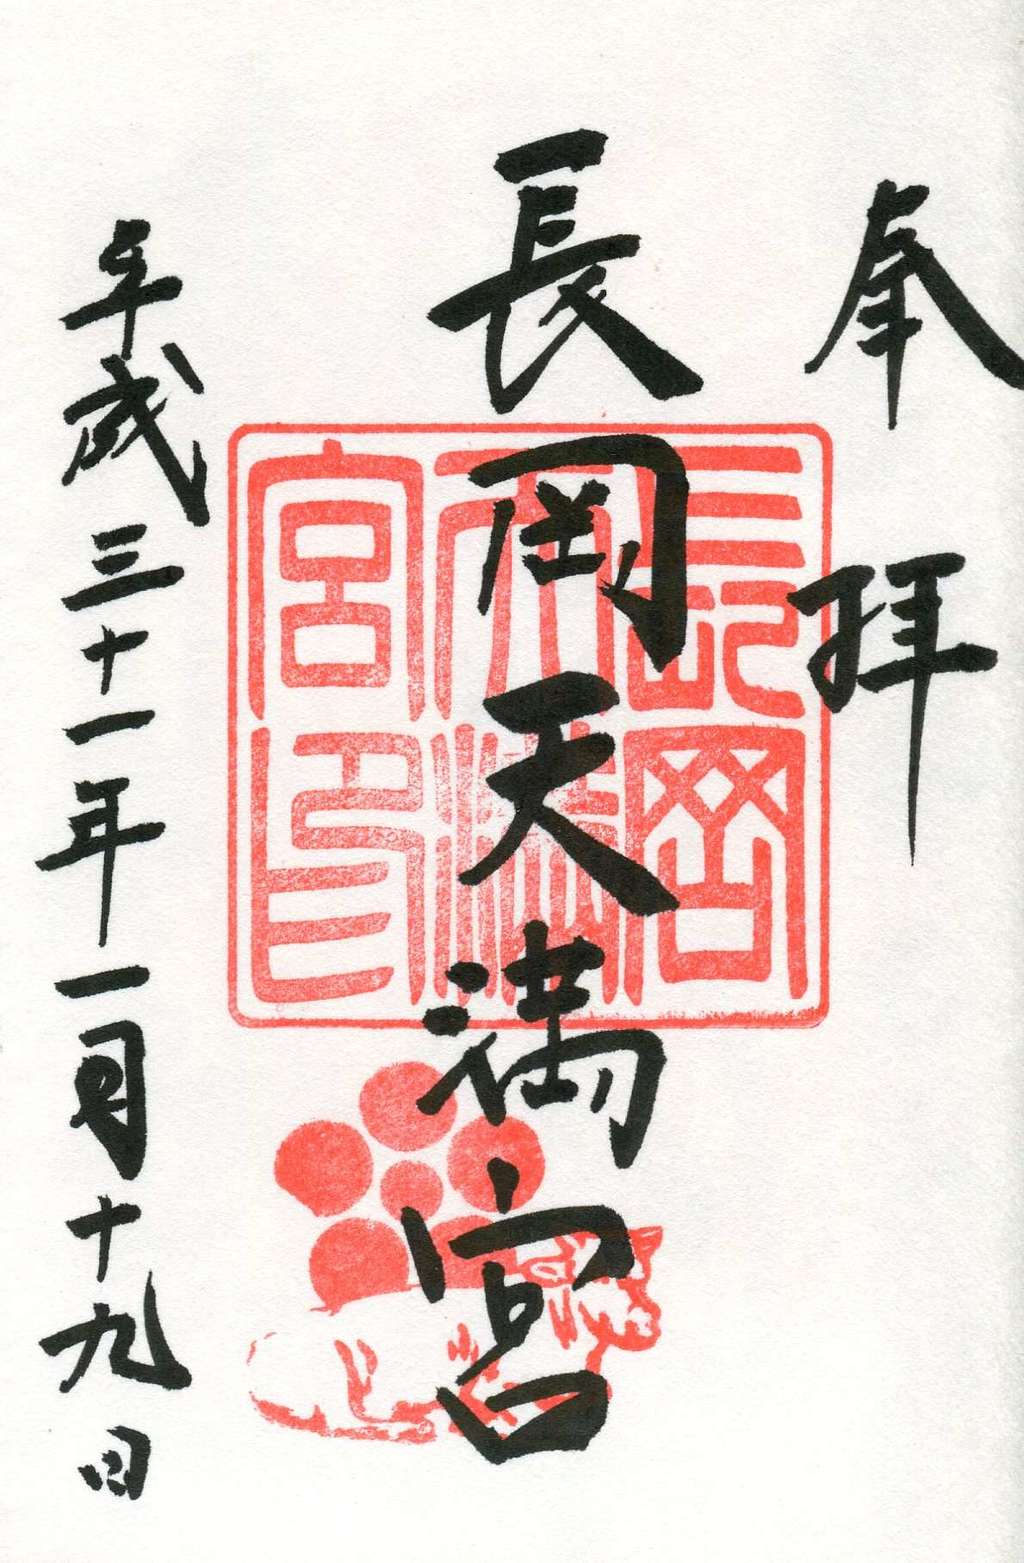 奉拝
長岡天満宮
平成三十一年一月十九日
長岡
天満
宮印